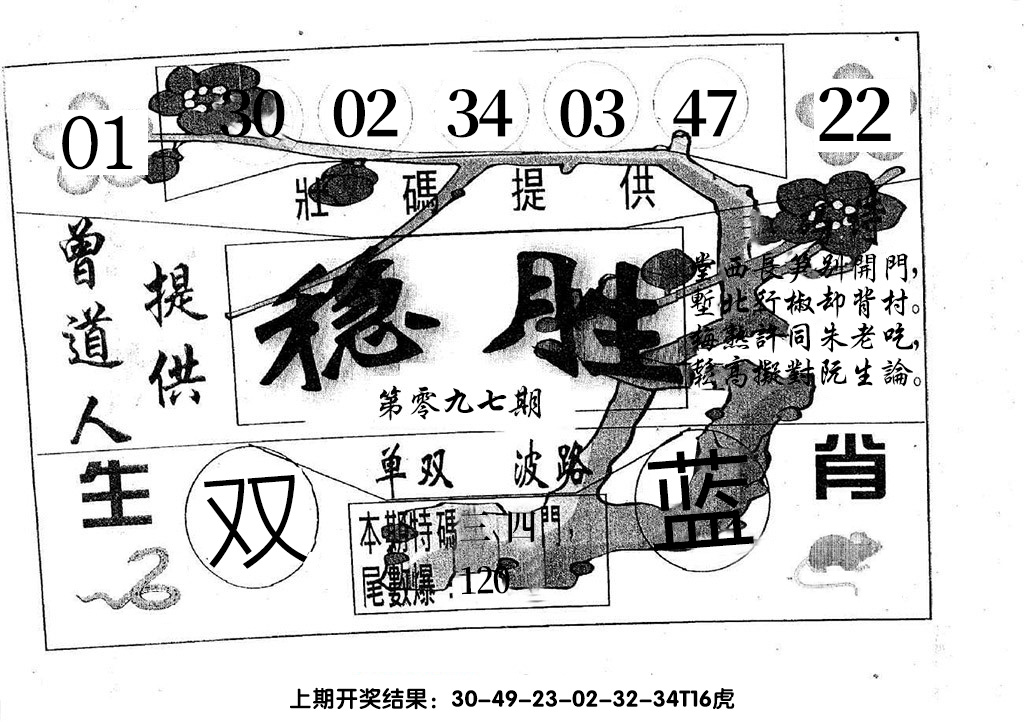 01 30 02 34 03 47 22
壯碼提供
特
曾道人
提供
稳胜
第零九七期
堂西長笋别開門，
塹北行椒却背村。
梅熟許同朱老吃，
高擬對阮生論。
单双 波路
生肖
双
蓝
本期特碼三、四門，
尾數爆：120
上期开奖结果：30-49-23-02-32-34T16虎